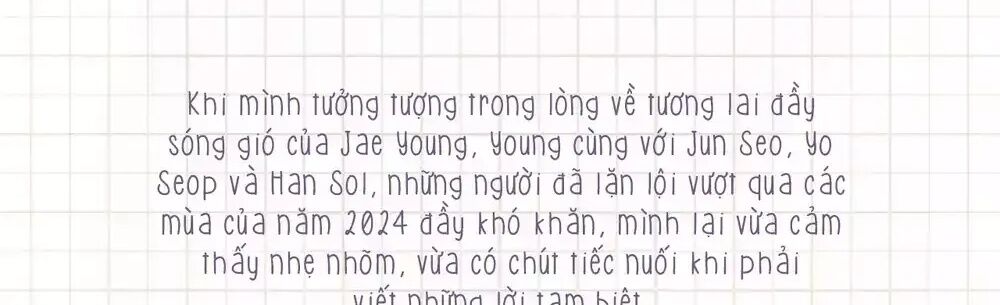 Khi mình tưởng tượng trong lòng về tương lai đầy
sóng gió của Jae Young, Young cùng với Jun Seo, Yo
Seop và Han Sol, những người đã lặn lội vượt qua các
mùa của năm 2024 đầy khó khăn, mình lại vừa cảm
thấy nhẹ nhõm, vừa có chút tiếc nuối khi phải
viết những lời tạm biệt